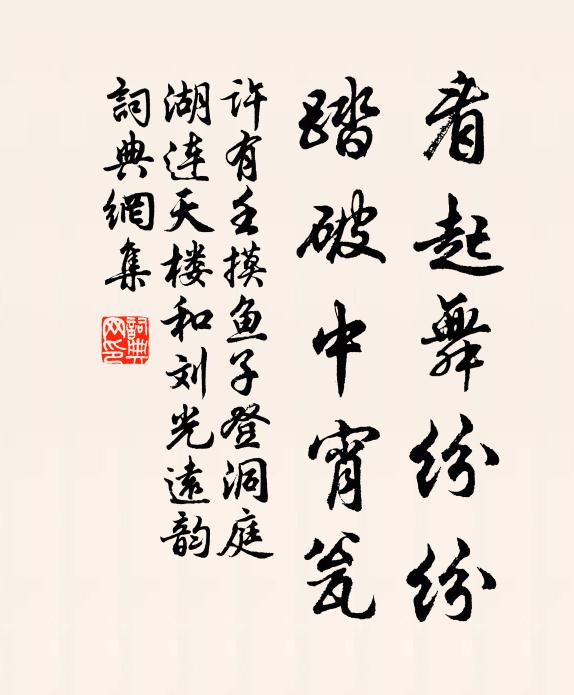 看起舞纷纷
踏破中宵瓮
许有壬摸鱼子登洞庭
湖连天楼和刘光远韵
詞典網集
詞典网印